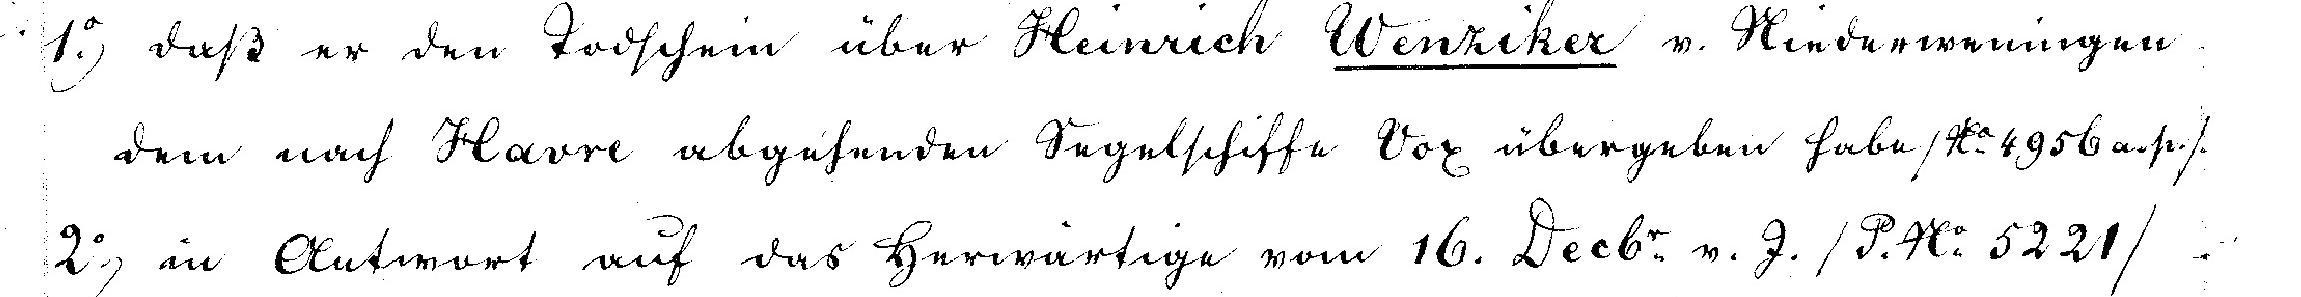 1.°) daß er den Todschein über Heinrich Wenziker v. Niederweningen
dem nach Havre abgehenden Segelschiffe Vox übergeben habe /N° 4956 a. p./.
2.°) in Antwort auf das Herwärtige vom 16. Decbr. v. J. /P. N° 5221/